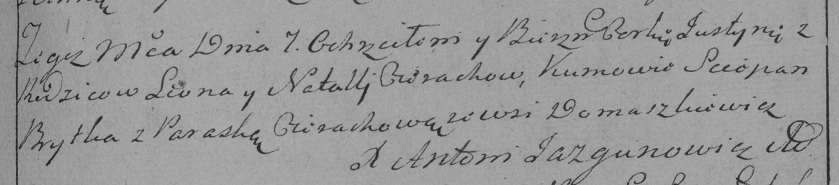 Tegoż Mca Dnia 7. Ochrzciłem y Bierzm Corkę Justynę z
Rodzicow Leona y Natalij Cierachow, Kumowie Sciepan
Brytka z Paraską Cierachową zewsi Domaszkiewicz
X Antoni Jazgunowicz